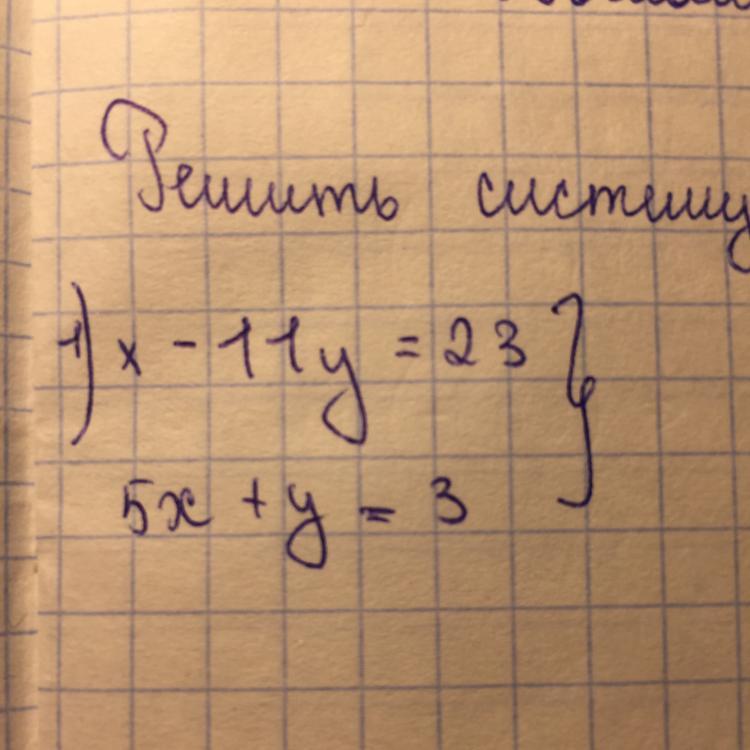 Решить систему
1) x - 11y = 23 }
5x + y = 3